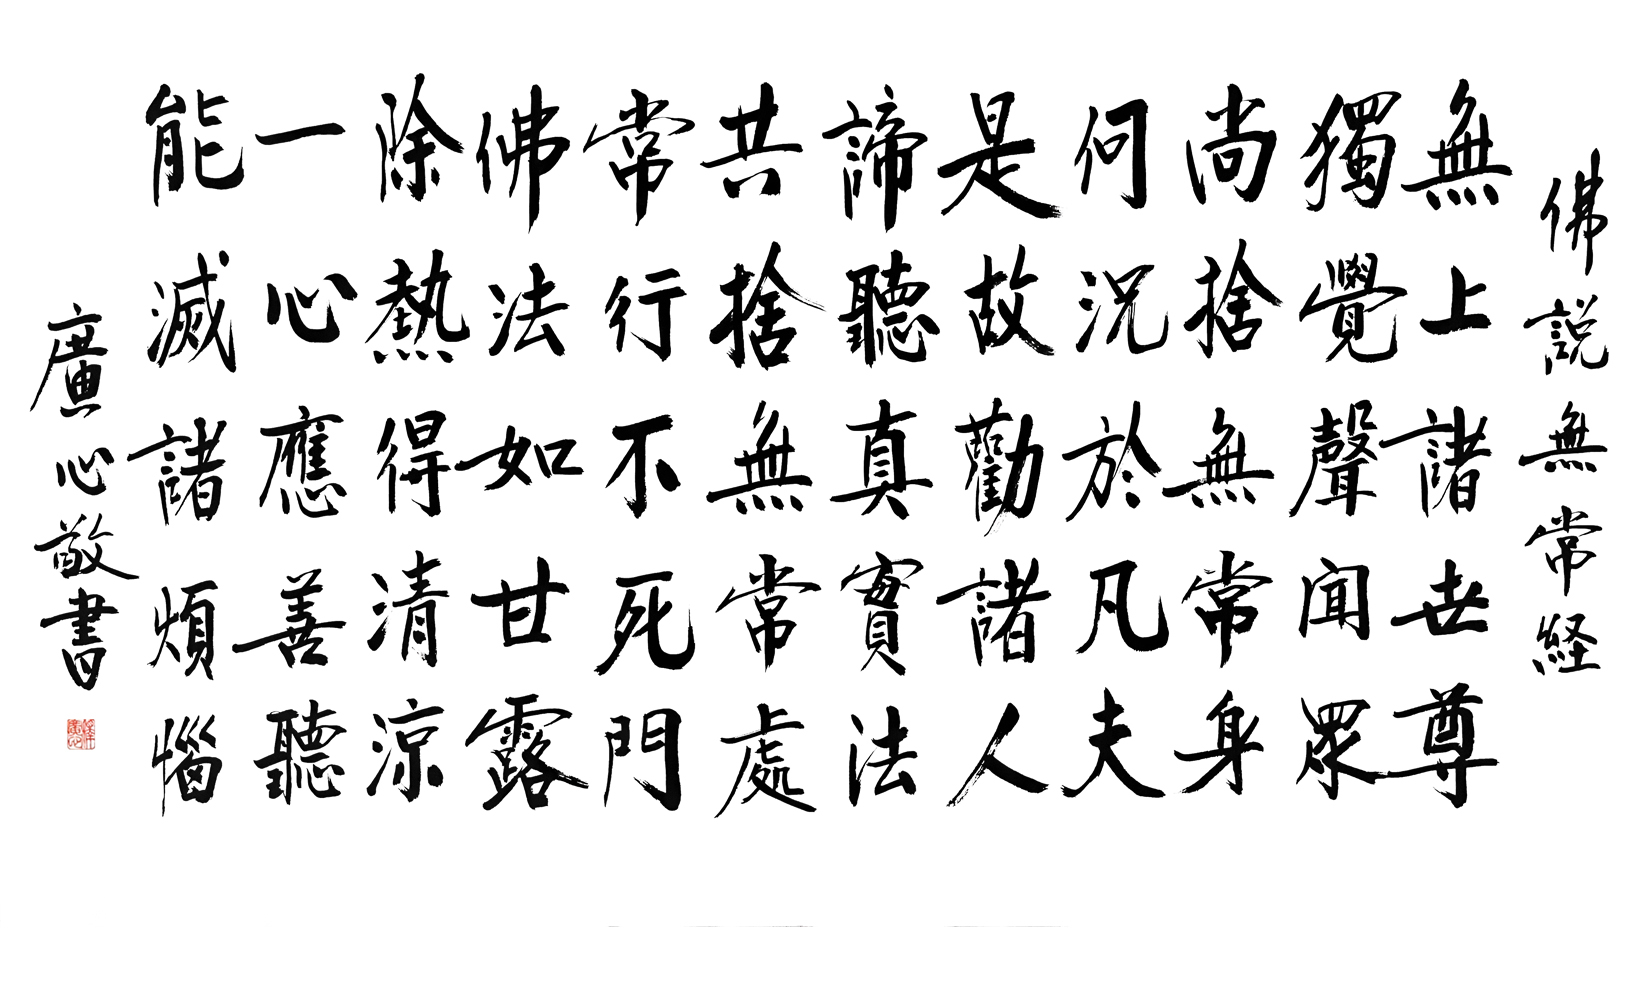 佛説無常経
無上諸世尊
獨覺聲聞眾
尚捨無常身
何況於凡夫
是故勸諸人
諦聽真實法
共捨無常處
常行不死門
佛法如甘露
除熱得清涼
一心應善聽
能滅諸煩惱
廣心敬書